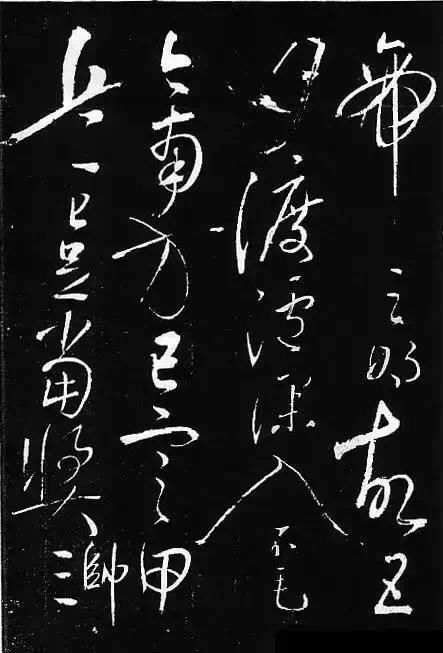 帝之明故五
月渡瀘深入不毛
今南方已定甲
兵已足當獎帥三